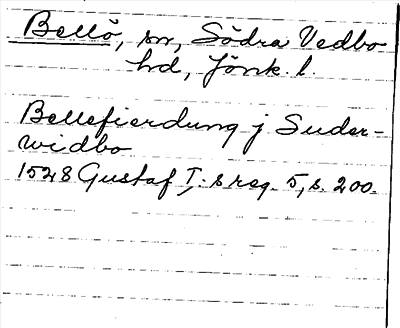 Bellö, sn, Södra Vedbo
hd, Jönk. l.
Bellefierdung j Suder-
widbo
1528 Gustaf I:s reg. 5, s. 200.